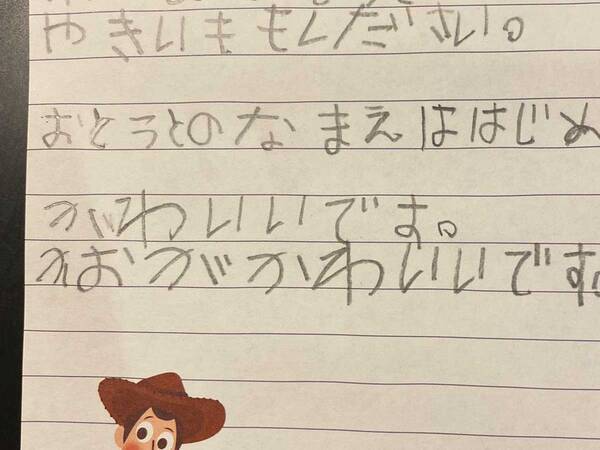 やきいももください。
おとうとのなまえははじめ
かわいいです。
かおがかわいいです。